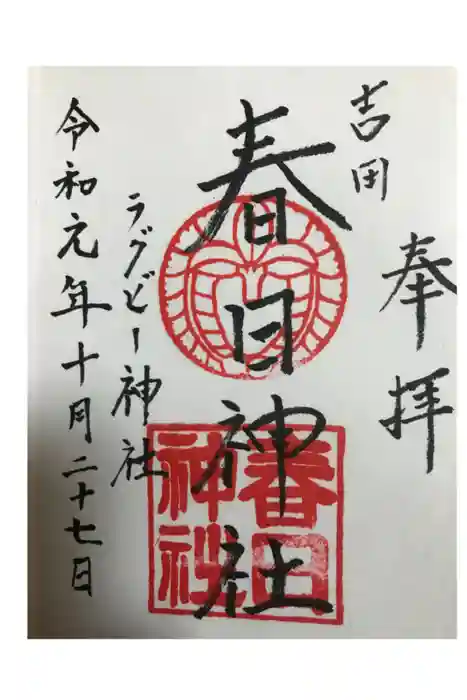 奉拝
吉田
春日神社
春日
神社
ラグビー神社
令和元年十月二十七日